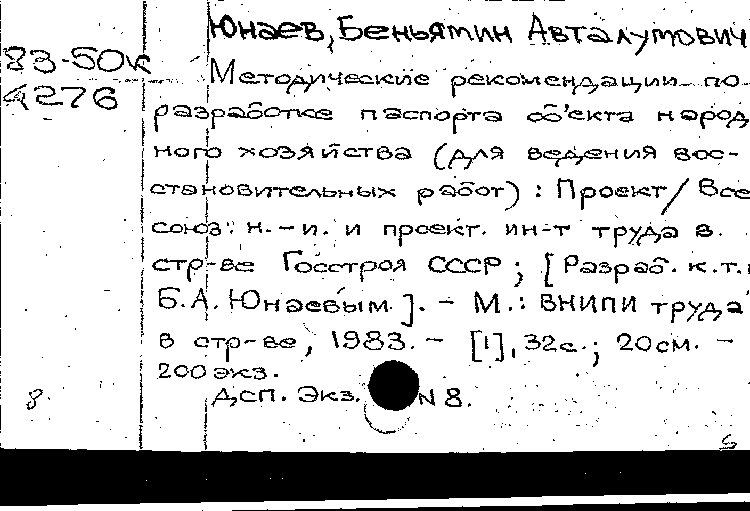 Юнаев, Беньямин Авталумович
83-50к
4276
Методические рекомендации по
разработке паспорта об'екта народ
ного хозяйства (для ведения вос-
становительных работ) : Проект / Все
союз. н.-и. и проект. ин-т труда в
стр-ве Госстроя СССР ; [Разраб. к.т.
Б.А. Юнаевым]. - М. : ВНИПИ труда
в стр-ве, 1983. - [1], 32с. ; 20см. -
200 экз.
ДСП. Экз. N 8.
8